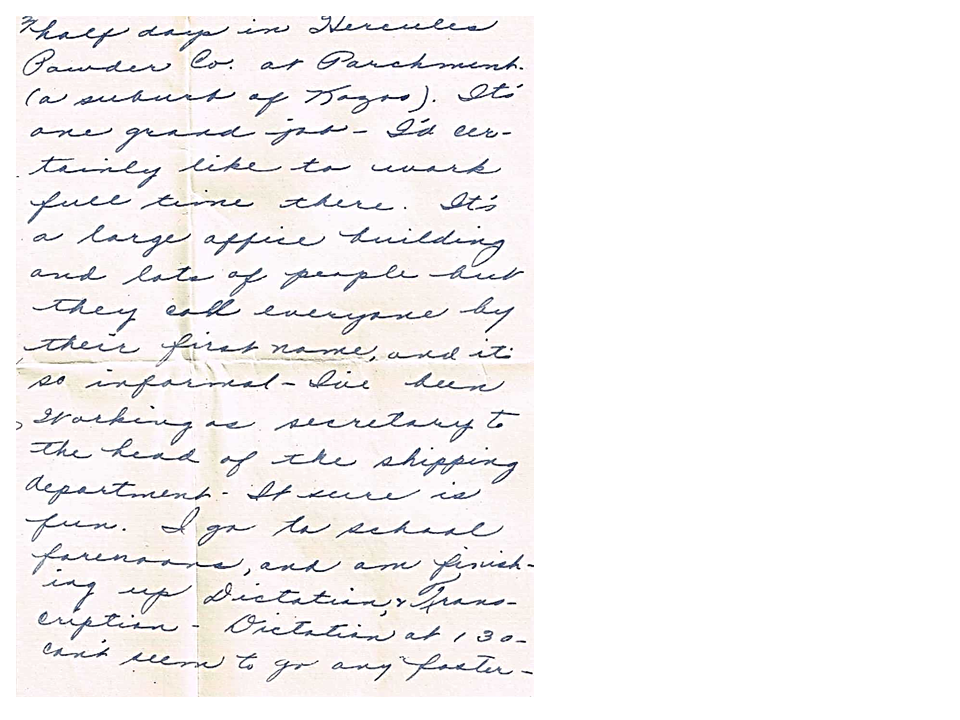 half days in Hercules
Powder Co. at Parchment.
(a suburb of Kazoo). It's
one grand job - I'd cer-
tainly like to work
full time there. It's
a large office building
and lots of people but
they call everyone by
their first name, and it's
so informal - I've been
working as secretary to
the head of the shipping
department - It sure is
fun. I go to school
forenoons, and am finish-
ing up Dictation, & Trans-
cription - Dictation at 130 -
can't seem to go any faster -